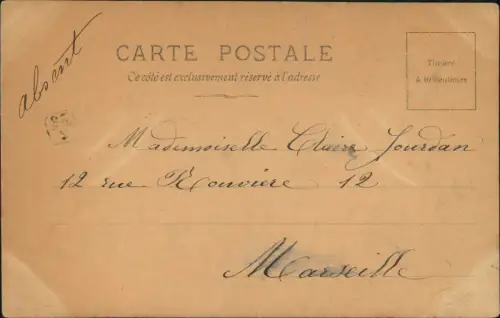 absent
CARTE POSTALE
Ce côté est exclusivement réservé à l'adresse
Timbre
à
Mademoiselle Claire Jourdan
12 rue Rouvière 12
Marseille